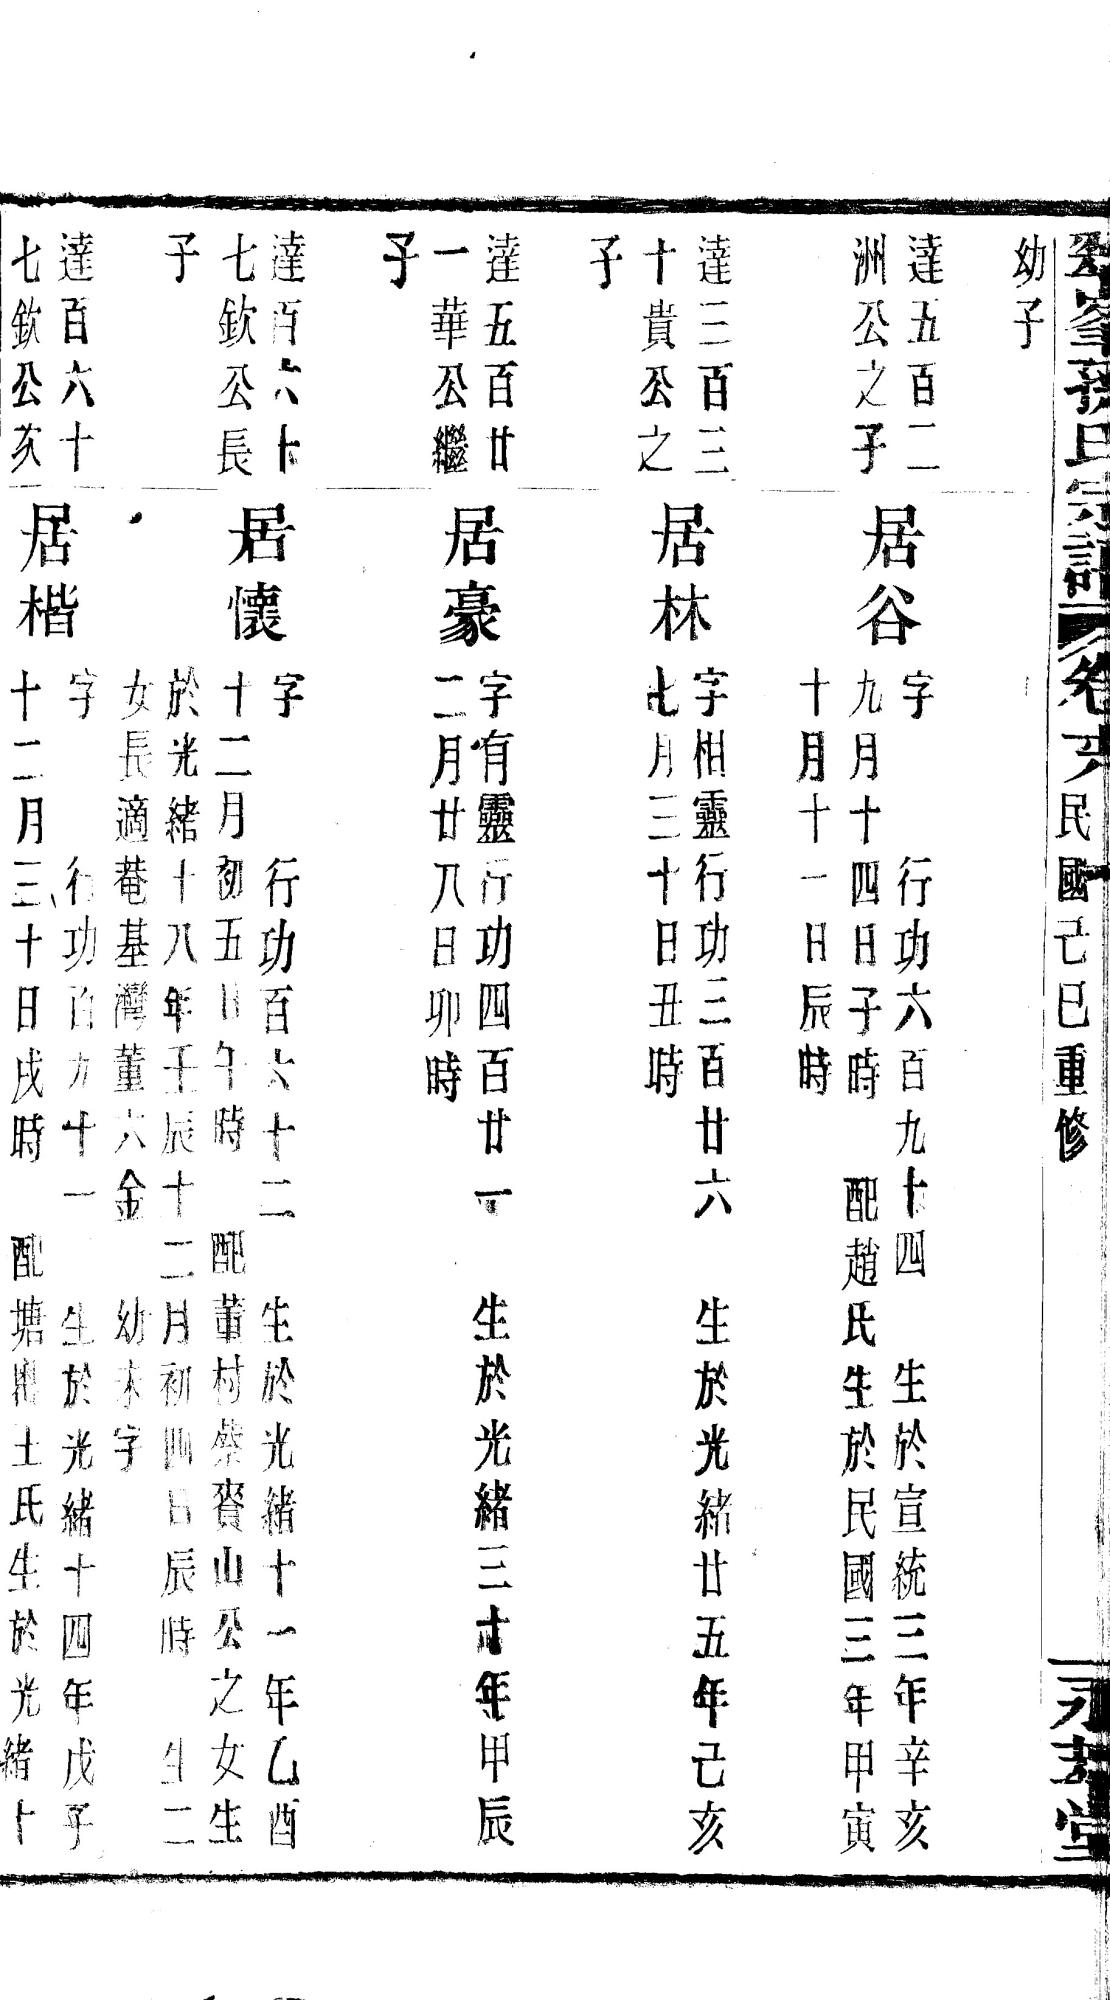 峯孫氏宗譜 卷六 民國己巳重修 永 堂
幼子
達五百二
洲公之子
居谷
字 行功六百九十四 生於宣統三年辛亥
九月十四日子時 配趙氏生於民國三年甲寅
十月十一日辰時
達三百三
十貴公之
子
居林
字相靈行功三百廿六 生於光緒廿五年己亥
七月三十日丑時
達五百廿
一華公繼
子
居豪
字有靈行功四百廿一 生於光緒三十年甲辰
二月廿八日卯時
達百六十
七欽公長
子
居懷
字 行功百六十二 生於光緒十一年乙酉
十二月初五日午時 配董村蔡賚山公之女生
於光緒十八年壬辰十二月初四日辰時 生二
女長適菴基灣董六金 幼未字
達百六十
七欽公次
居楷
字 行功百九十一 生於光緒十四年戊子
十二月三十日戌時 配塘 王氏生於光緒十